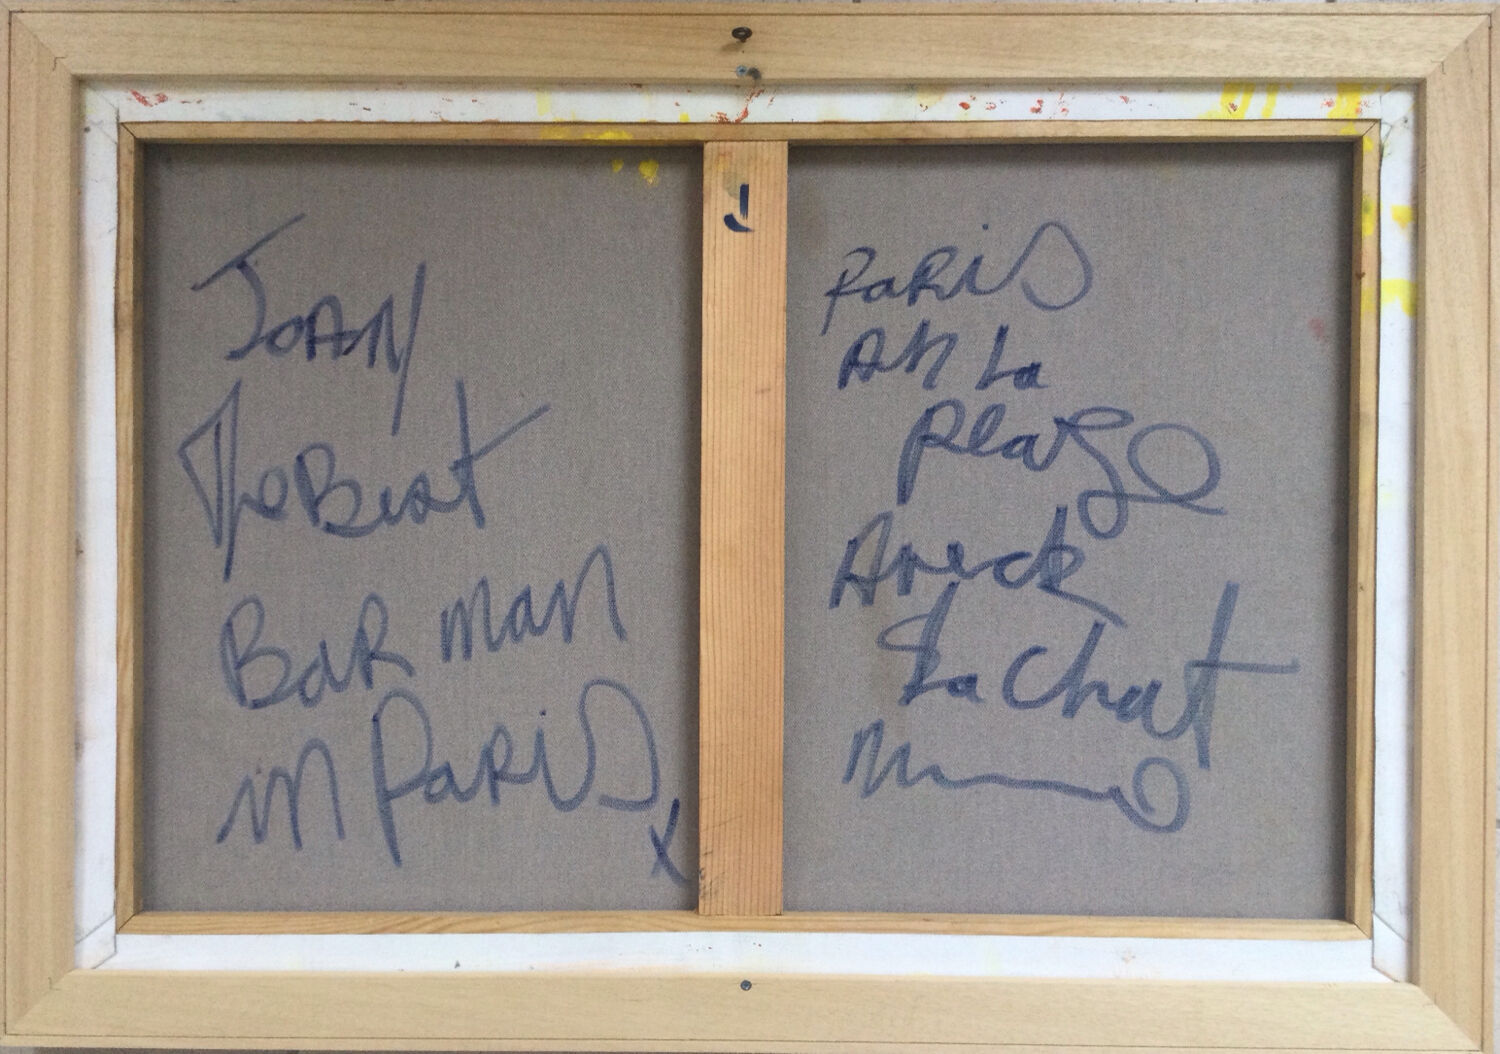 JOANY
The Best
BAR man
in PARIS
x
PARiS
AH La
Plage
Aveck
La Chat